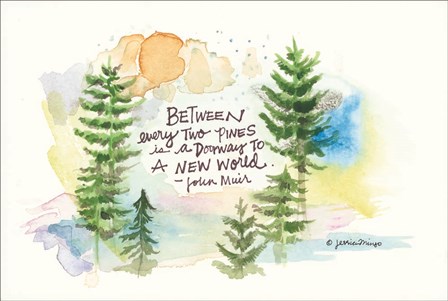 BETWEEN
every TWO PINES
is a DOORWAY TO
A NEW WORLD.
- John Muir
© Jessica Mingo